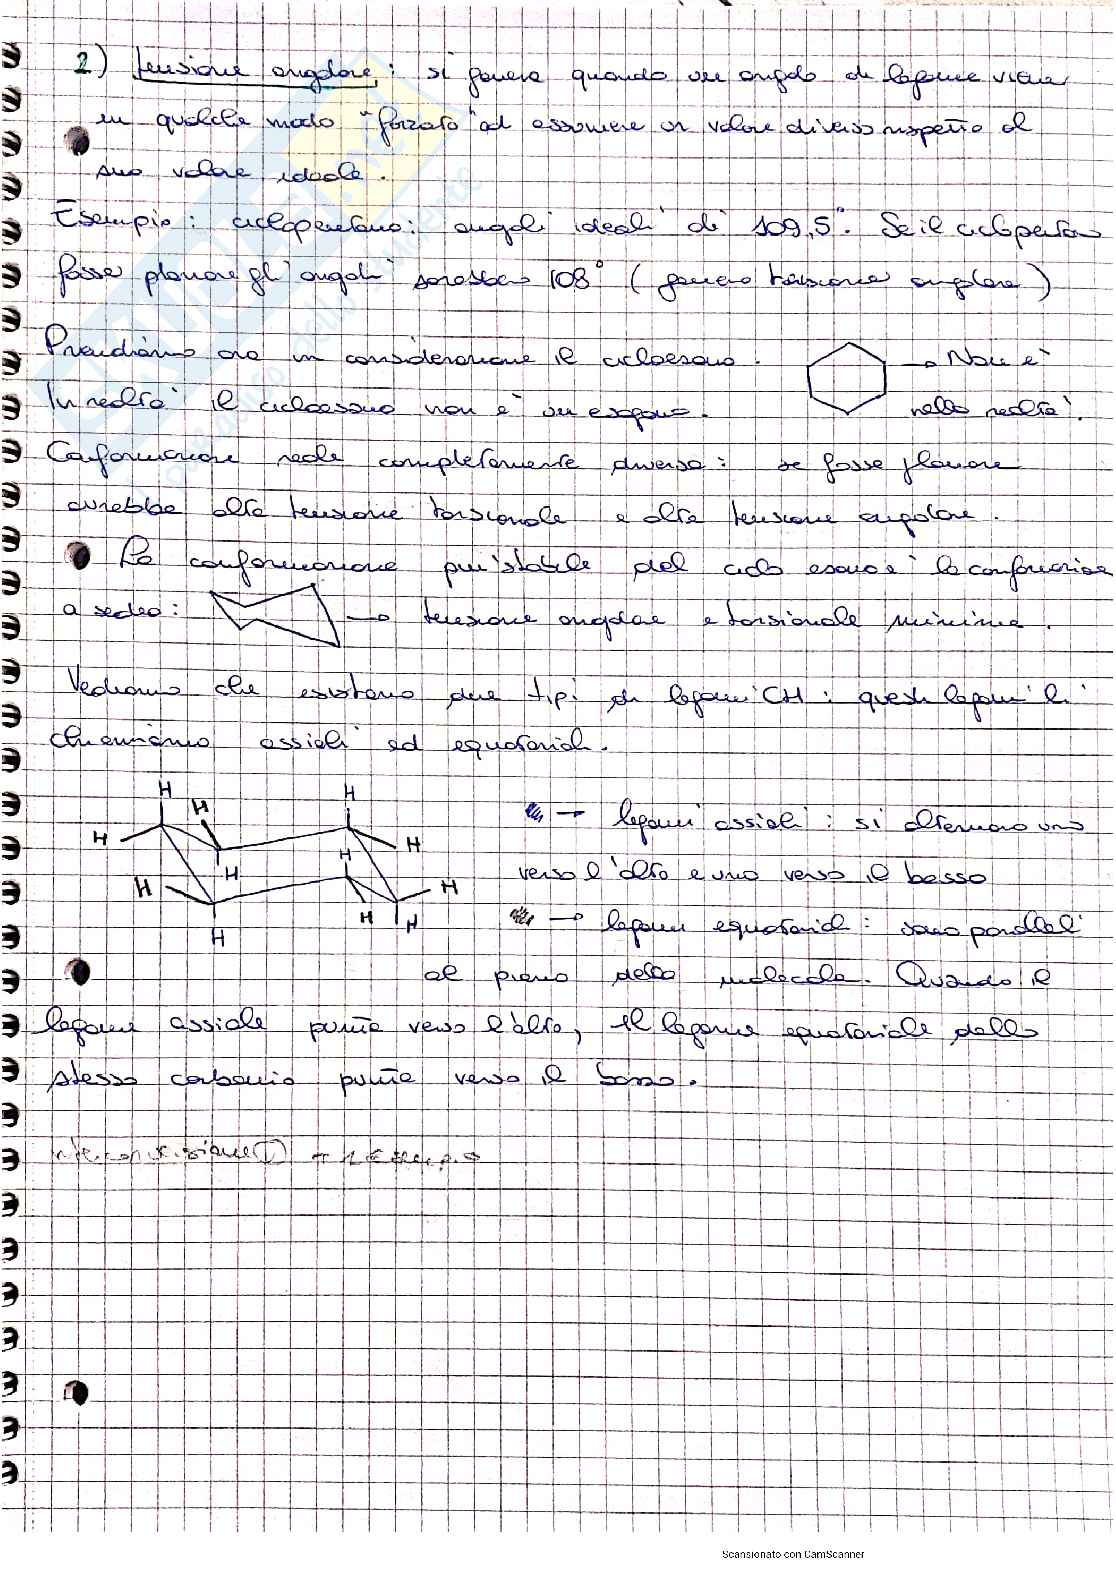 2) tensione angolare: si genera quando un angolo di legame viene
in qualche modo "forzato" ad assumere un valore diverso rispetto al
suo valore ideale.
Esempio: ciclopentano: angoli ideali di 109,5°. Se il ciclopentano
fosse planare gli angoli sarebbero 108° (genero torsione angolare)
Prendiamo ora in considerazione il cicloesano. → Non è
In realtà il cicloesano non è un esagono. nella realtà.
Conformazione reale completamente diversa: se fosse planare
avrebbe alta tensione torsionale e alta tensione angolare.
La conformazione più stabile del ciclo esano è la conformazione
a sedia: → tensione angolare e torsionale minima.
Vediamo che esistono due tipi di legami CH: questi legami li
chiamiamo assiali ed equatoriali.
H H H
H H → legami assiali: si alternano uno
H H verso l'alto e uno verso il basso
H H H H → legami equatoriali: sono paralleli
H
al piano della molecola. Quando il
legame assiale punta verso l'alto, il legame equatoriale dello
stesso carbonio punta verso il basso.
Scansionato con CamScanner